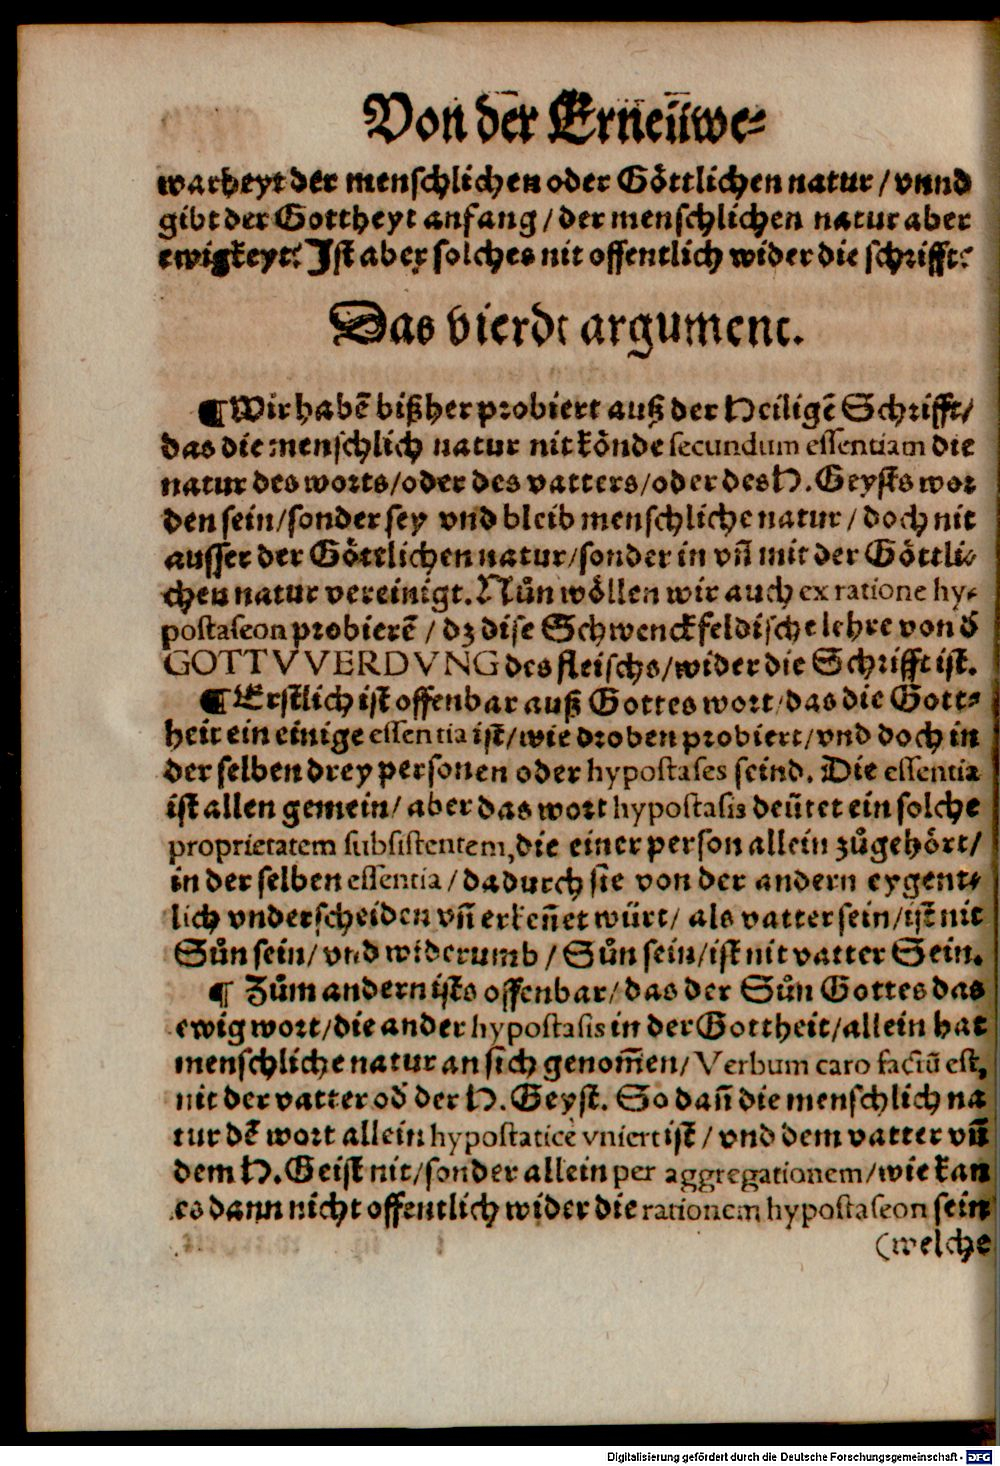 Von der Erneüwe⸗
warheyt der menschlichen oder Göttlichen natur / vnnd
gibt der Gottheyt anfang / der menschlichen natur aber
ewigkeyt? Ist aber solches nit offentlich wider die schrifft?
Das vierdt argument.
¶ Wir habē bißher probiert auß der Heiligē Schrifft/
das die menschlich natur nit könde secundum essentiam die
natur des worts/oder des vatters/oder des H. Geysts wor
den sein/sonder sey vnd bleib menschliche natur / doch nit
ausser der Göttlichen natur/sonder in vñ mit der Göttli⸗
chen natur vereinigt. Nůn wöllen wir auch ex ratione hy⸗
postaseon probierē / dz dise Schwenckfeldische lehre von d̄
GOTTVVERDVNG des fleischs/wider die Schrifft ist.
¶ Erstlich ist offenbar auß Gottes wort/das die Gott⸗
heit ein einige essentia ist/wie droben probiert/vnd doch in
der selben drey personen oder hypostases seind. Die essentia
ist allen gemein/ aber das wort hypostasis deütet ein solche
proprietatem subsistentem,die einer person allein zůgehört/
in der selben essentia / dadurch sie von der andern eygent⸗
lich vnderscheiden vñ erkeñet würt/ als vatter sein/ist nit
Sůn sein/ vnd widerumb / Sůn sein/ist nit vatter Sein.
¶ Zům andern ists offenbar/das der Sůn Gottes das
ewig wort/die ander hypostasis in der Gottheit/allein hat
menschliche natur an sich genom̄en/ Verbum caro factū est,
nit der vatter od̄ der H. Geyst. So dañ die menschlich na
tur dē wort allein hypostaticè vniert ist / vnd dem vatter vñ
dem H. Geist nit/sonder allein per aggregationem/wie kan
es dann nicht offentlich wider die rationem hypostaseon sein
(welche
Digitalisierung gefördert durch die Deutsche Forschungsgemeinschaft - DFG